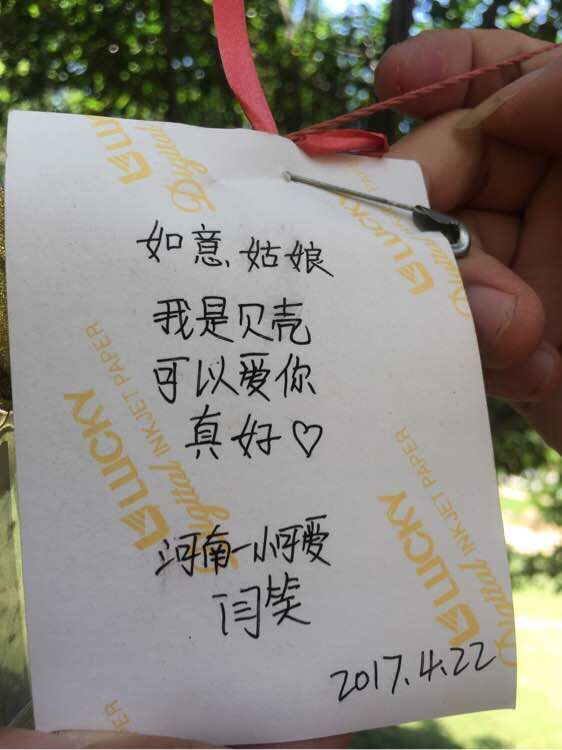 LUCKY Digital
LUCKY Digital INKJET PAPER
如意姑娘
我是贝壳
可以爱你
真好♡
LUCKY Digital INKJET PAPER
LUCKY Digital INKJET PAPER
河南一小可爱
闫笑
2017.4.22